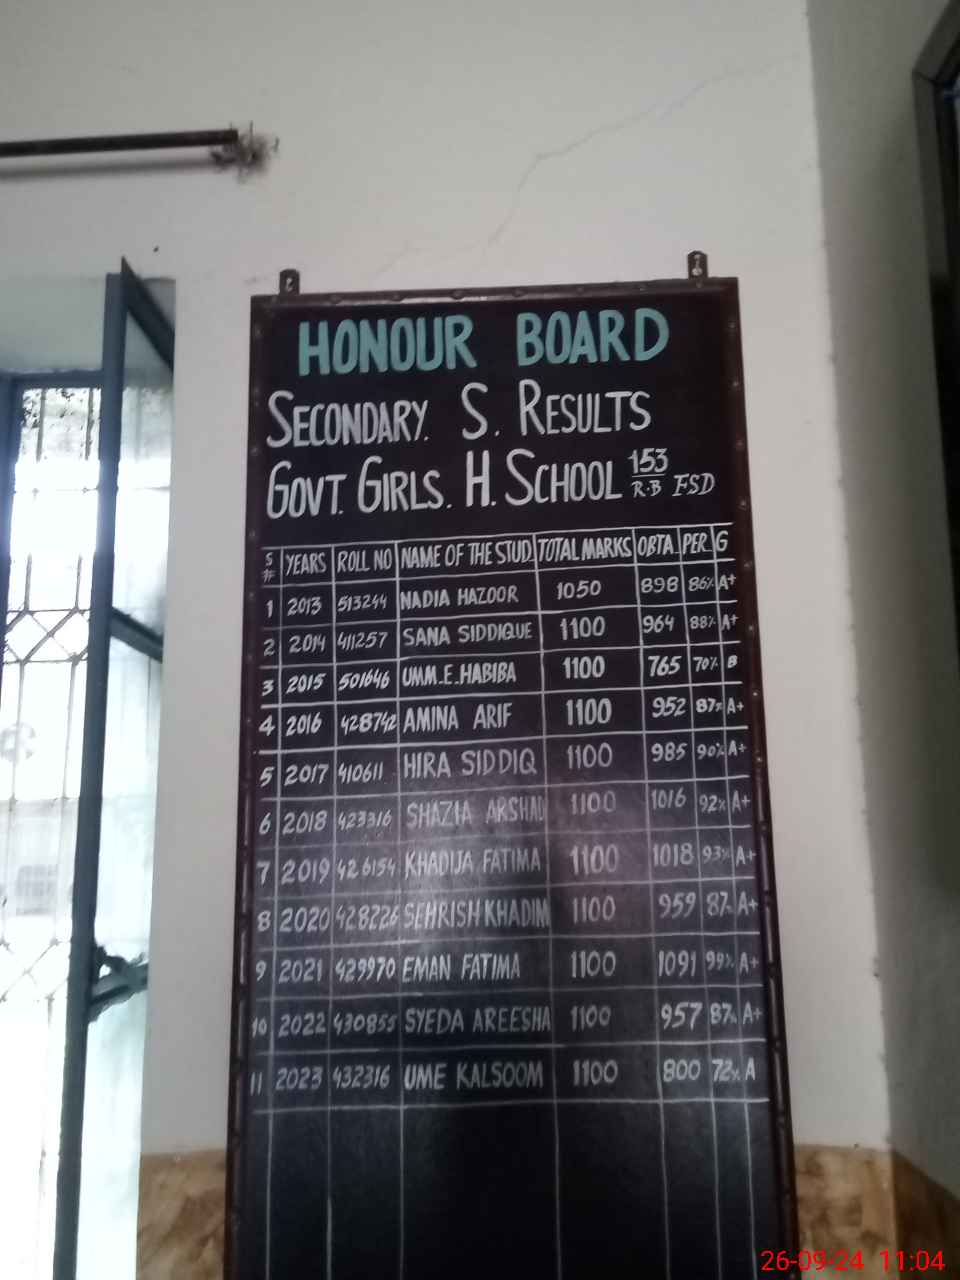 HONOUR BOARD
SECONDARY. S. RESULTS
GOVT. GIRLS. H. SCHOOL 153 R.B FSD
S # YEARS ROLL NO NAME OF THE STUD. TOTAL MARKS OBTA. PER. G
1 2013 513244 NADIA HAZOOR 1050 898 86% A+
2 2014 411257 SANA SIDDIQUE 1100 964 88% A+
3 2015 501646 UMM.E.HABIBA 1100 765 70% B
4 2016 428742 AMINA ARIF 1100 952 87% A+
5 2017 410611 HIRA SIDDIQ 1100 985 90% A+
6 2018 423316 SHAZIA ARSHAD 1100 1016 92% A+
7 2019 426154 KHADIJA FATIMA 1100 1018 93% A+
8 2020 428226 SEHRISH KHADIM 1100 959 87% A+
9 2021 429970 EMAN FATIMA 1100 1091 99% A+
10 2022 430855 SYEDA AREESHA 1100 957 87% A+
11 2023 432316 UME KALSOOM 1100 800 72% A
26-09-24 11:04